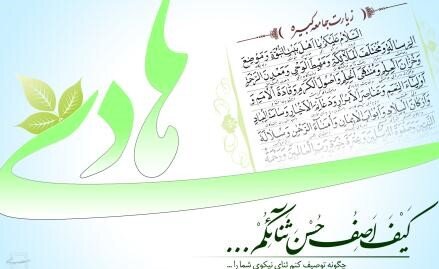 زیارت جامعه کبیره
السَّلامُ عَلَیْکُمْ یا اَهْلَ بَیْتِ النُّبُوَّةِ وَ مَوْضِعَ
الرِّسالَةِ وَ مُخْتَلَفَ الْمَلائِکَةِ وَ مَهْبِطَ الْوَحْیِ وَ مَعْدِنَ الرَّحْمَةِ
وَ خُزّانَ الْعِلْمِ وَ مُنْتَهَی الْحِلْمِ وَ اُصُولَ الْکَرَمِ وَ قادَةَ الْاُمَمِ وَ
اَوْلِیاءَ النِّعَمِ وَ عَناصِرَ الْاَبْرارِ وَ دَعائِمَ الْاَخْیارِ وَ ساسَةَ الْعِبادِ
وَ اَرْکانَ الْبِلادِ وَ اَبْوابَ الْایمانِ وَ اُمَناءَ الرَّحْمنِ وَ سُلالَةَ
هادی
کَیْفَ اَصِفُ حُسْنَ ثَنآئِکُمْ ...
چگونه توصیف کنم ثنای نیکوی شما را ...